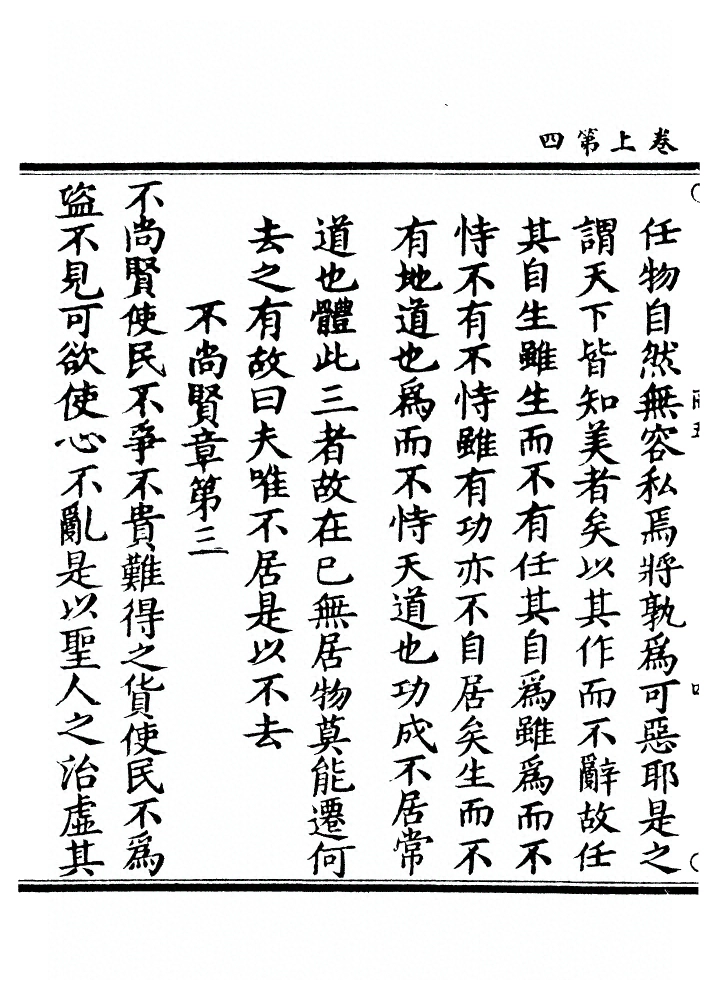 卷上第四
任物自然無容私焉將孰爲可惡耶是之
謂天下皆知美者矣以其作而不辭故任
其自生雖生而不有任其自爲雖爲而不
恃不有不恃雖有功亦不自居矣生而不
有地道也爲而不恃天道也功成不居常
道也體此三者故在已無居物莫能遷何
去之有故曰夫唯不居是以不去
不尚賢章第三
不尚賢使民不爭不貴難得之貨使民不爲
盜不見可欲使心不亂是以聖人之治虛其